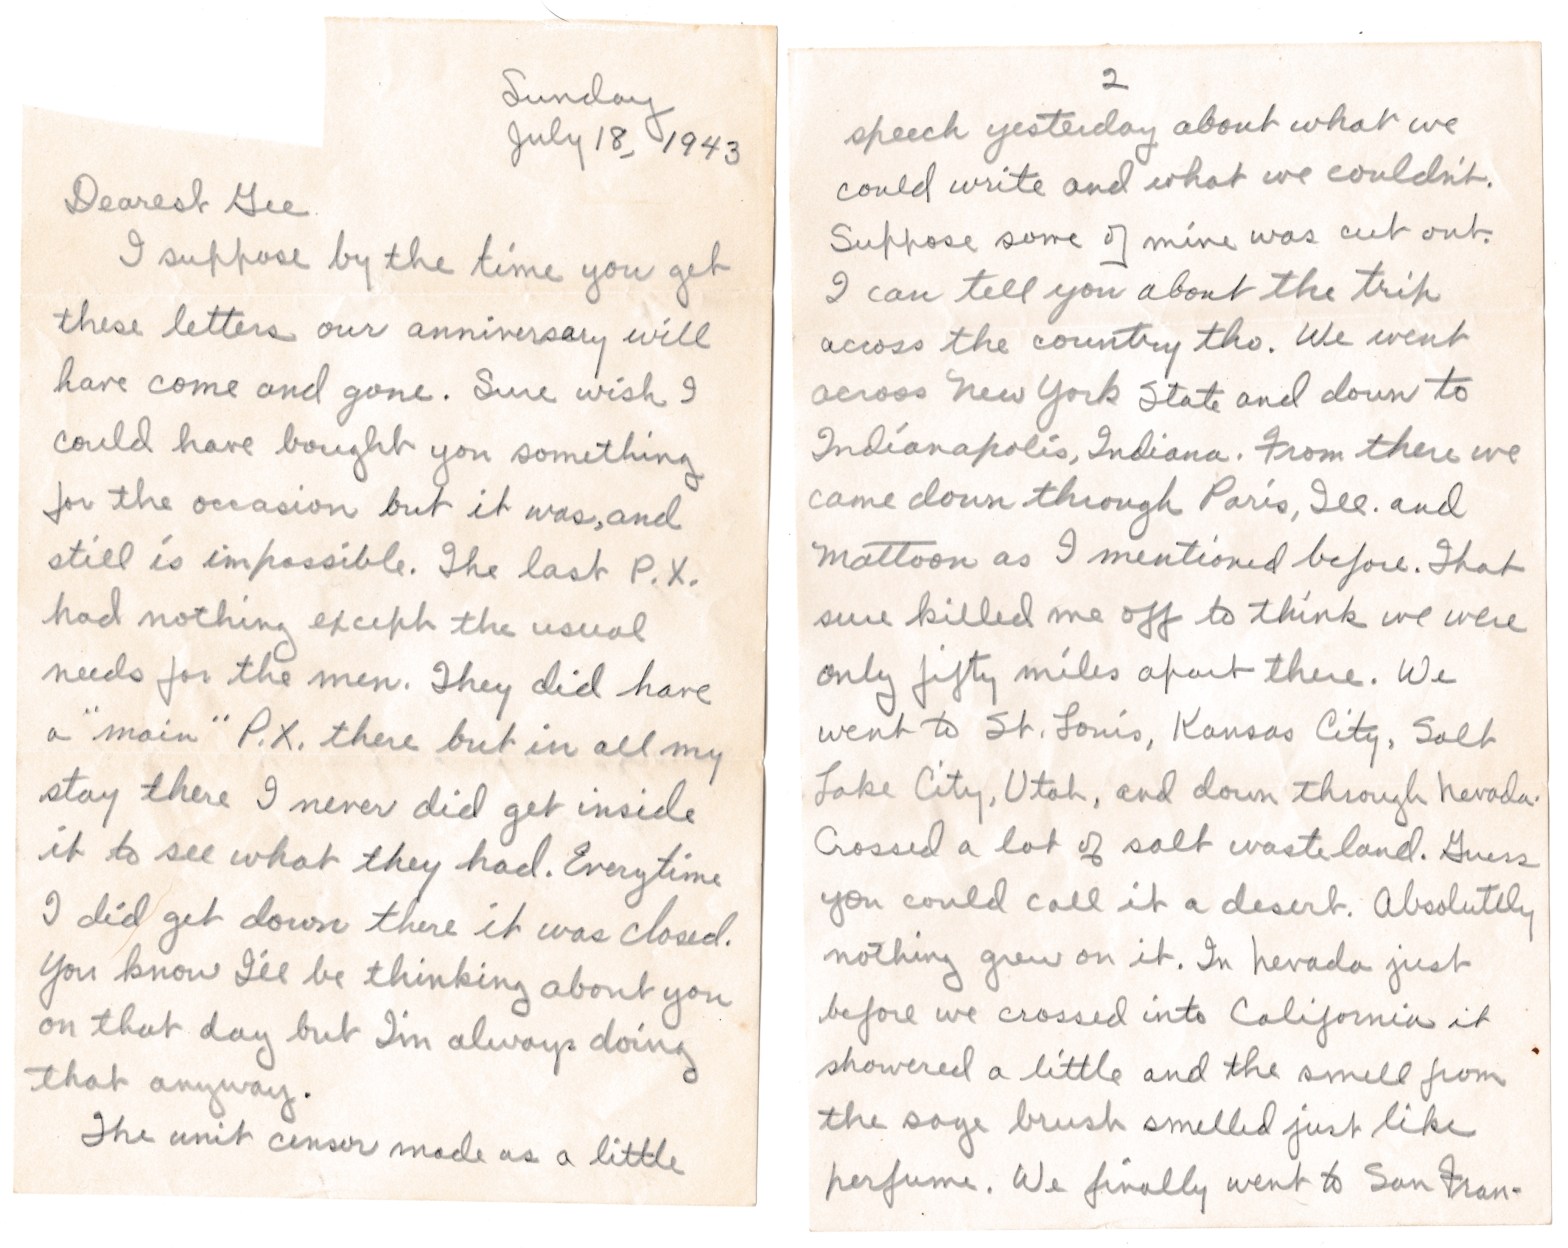 Sunday
July 18, 1943
Dearest Gee
I suppose by the time you get
these letters our anniversary will
have come and gone. Sure wish I
could have bought you something
for the occasion but it was, and
still is impossible. The last P.X.
had nothing except the usual
needs for the men. They did have
a "main" P.X. there but in all my
stay there I never did get inside
it to see what they had. Everytime
I did get down there it was closed.
You know I'll be thinking about you
on that day but I'm always doing
that anyway.
The unit censor made us a little
2
speech yesterday about what we
could write and what we couldn't.
Suppose some of mine was cut out.
I can tell you about the trip
across the country tho. We went
across New York State and down to
Indianapolis, Indiana. From there we
came down through Paris, Ill. and
Mattoon as I mentioned before. That
sure killed me off to think we were
only fifty miles apart there. We
went to St. Louis, Kansas City, Salt
Lake City, Utah, and down through Nevada.
Crossed a lot of salt wasteland. Guess
you could call it a desert. Absolutely
nothing grew on it. In Nevada just
before we crossed into California it
showered a little and the smell from
the sage brush smelled just like
perfume. We finally went to San Fran-